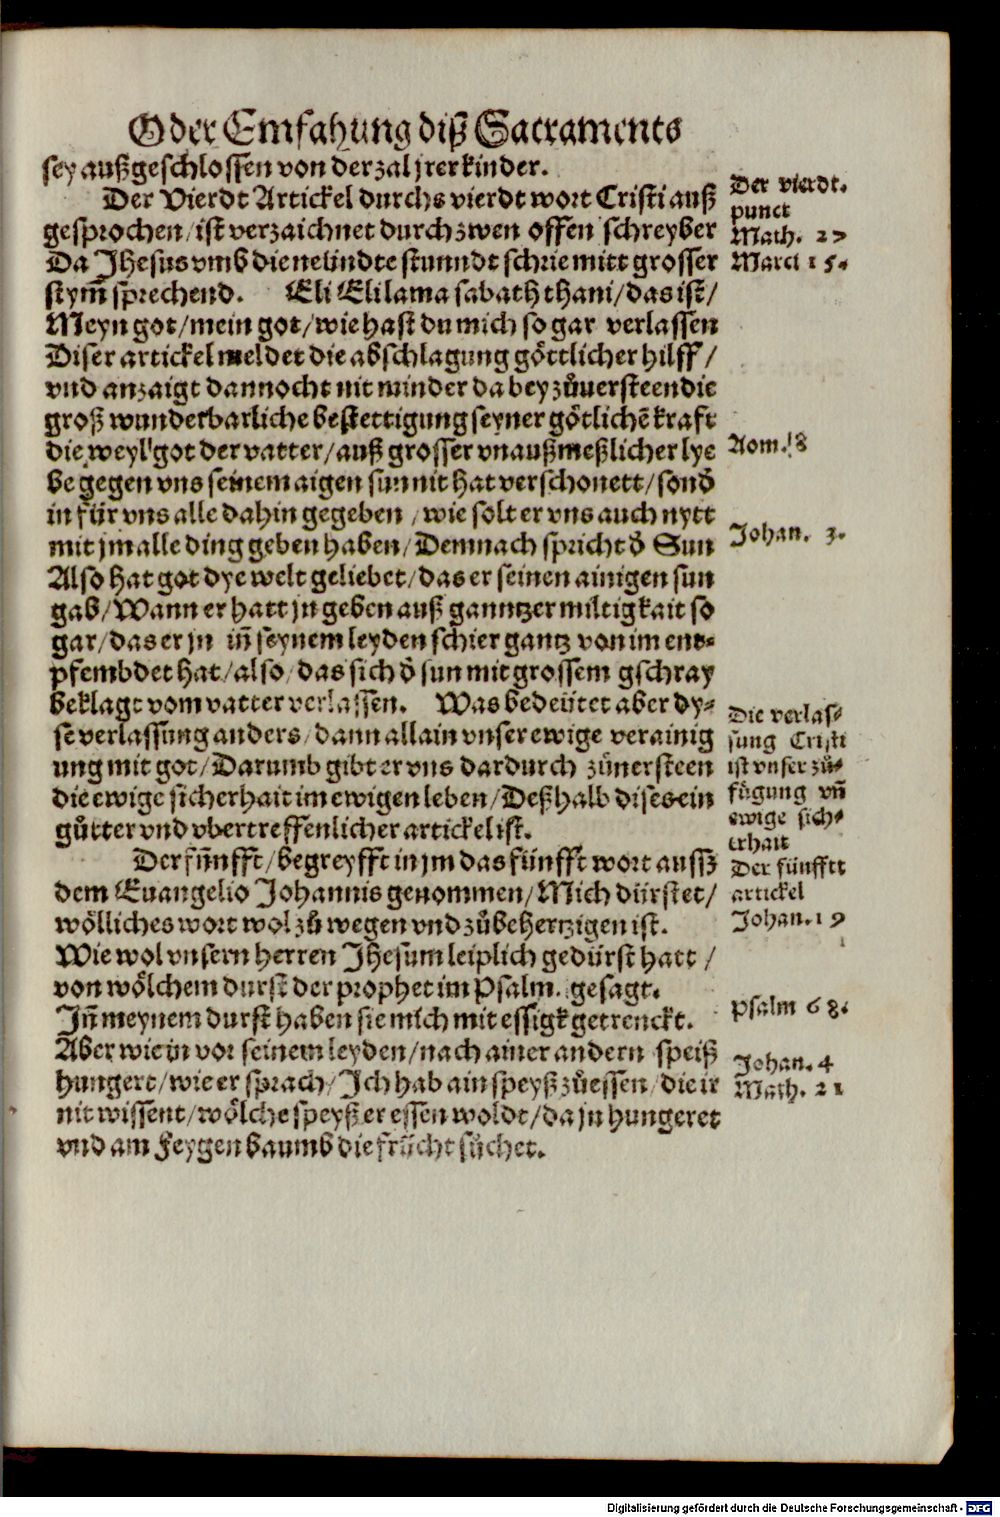 Oder Emfahung diß Sacraments
sey außgeschlossen von der zal jrer kinder.
Der Vierdt Artickel durchs vierdt wort Cristi auß
gesprochen/ist verzaichnet durch zwen offen schreyber
Da Jhesus vmb die neündte stunndt schrie mitt grosser
stym̃ sprechend. Eli Eli lama sabathchani/das ist/
Meyn got/mein got/wie hast du mich so gar verlassen
Diser artickel meldet die abschlagung göttlicher hilff/
vnd anzaigt dannocht nit minder da bey zůuersteen die
groß wunderbarliche bestettigung seyner götlichẽ kraft
die weyl got der vatter/auß grosser vnaußmeßlicher lye
be gegen vns seinem aigen sun nit hat verschonett/sonð
in für vns alle dahin gegeben/wie solt er vns auch nytt
mit jm alle ding geben haben/Demnach spricht ð Sun
Also hat got dye welt geliebet/das er seinen ainigen sun
gab/Wann er hatt jn geben auß ganntzer miltigkait so
gar/das er jn iñ seynem leyden schier gantz von im ent-
pfembdet hat/also/das sich ð sun mit grossem gschray
beklagt vom vatter verlassen. Was bedeütet aber dy-
se verlassung anders/dann allain vnser ewige verainig
ung mit got/Darumb gibt er vns dardurch zůuersteen
die ewige sicherhait im ewigen leben/Deßhalb dises ein
gůtter vnd vbertreffenlicher artickel ist.
Der fün̈fft/begreyfft in jm das fünfft wort aussz
dem Euangelio Johannis genommen/Mich dürstet/
wölliches wort wol zů wegen vnd zůbehertzigen ist.
Wie wol vnsern herren Jhesum leiplich gedürst hatt/
von wölchem durst der prophet im Psalm. gesagt.
Jñ meynem durst haben sie mich mit essigk getrenckt.
Aber wie in vor seinem leyden/nach ainer andern speiß
hungert/wie er sprach/Ich hab ain speyß zůessen/die ir
nit wissent/wölche speyß er essen woldt/da jn hungeret
vnd am Feygenbaumb die frücht sůchet.
Der vierdt.
punct
Math. 27
Marci 15.
Rom. 8
Johan. 3.
Die verlas-
sung Cristi
ist vnser zů-
fügung vñ
ewige sich-
erhait
Der fünfftt
artickel
Johan. 19
Psalm 68.
Johan. 4
Math. 21
Digitalisierung gefördert durch die Deutsche Forschungsgemeinschaft - DFG